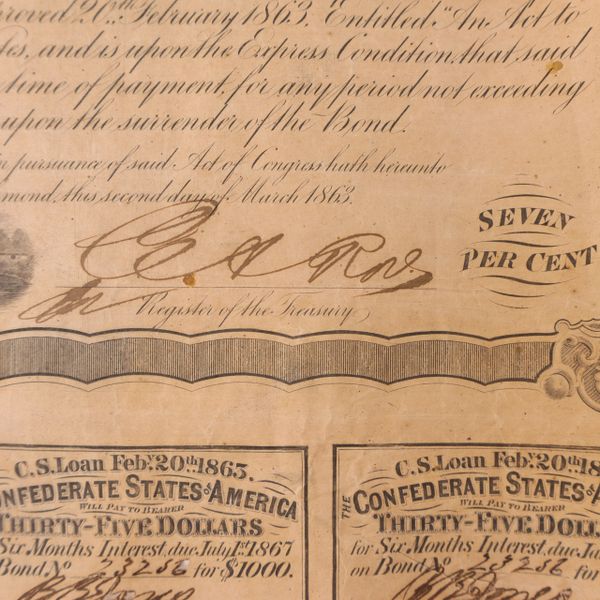 roved 20th February 1863. Entitled "An Act to
es, and is upon the Express Condition, that said
time of payment, for any period not exceeding
upon the surrender of the Bond.
n pursuance of said Act of Congress hath hereunto
mond, this second day of March 1863.
SEVEN
PER CENT
Register of the Treasury
C.S. Loan Feby. 20th 1863.
ONFEDERATE STATES OF AMERICA
WILL PAY TO BEARER
THIRTY-FIVE DOLLARS
Six Months Interest, due July 1st 1867
Bond No 23256 for $1000.
C.S. Loan Feby. 20th 18
THE CONFEDERATE STATES OF A
WILL PAY TO BEARER
THIRTY-FIVE DOLL
for Six Months Interest, due Ju
on Bond No 23256 for